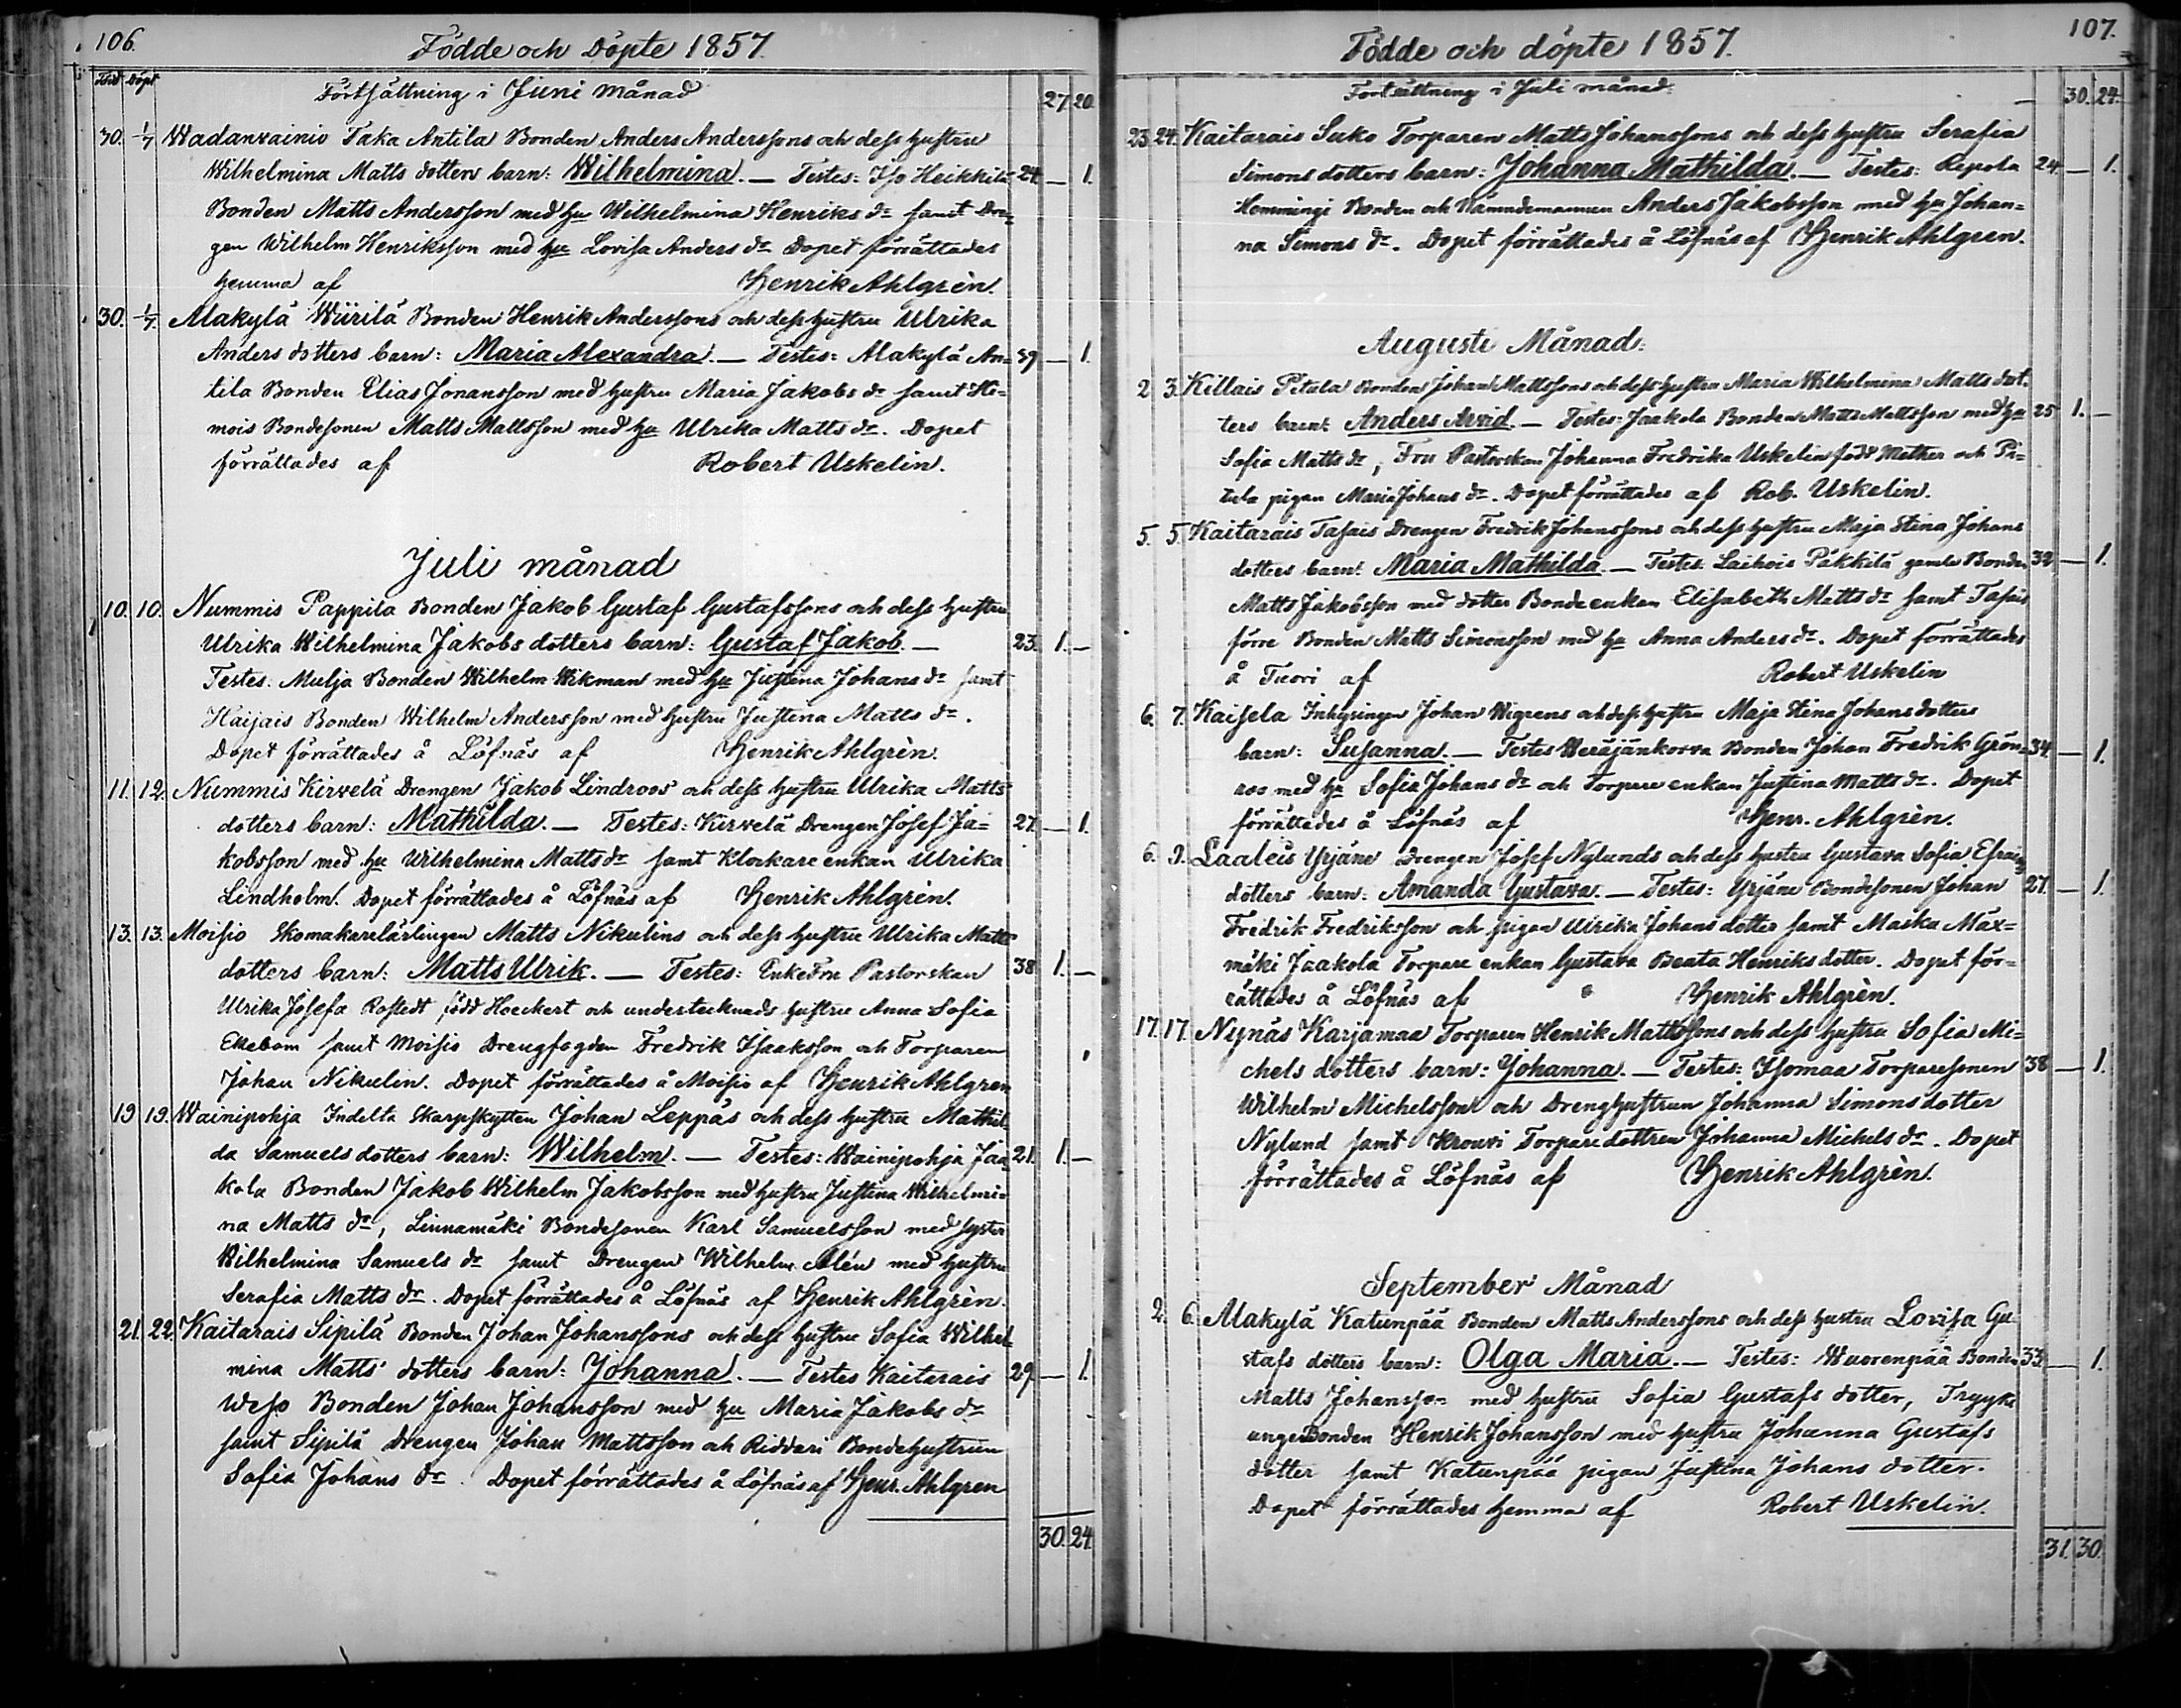 106.
Födde och Döpte 1857.
Född Döpt
Fortsättning i Juni månad
27. 20.
30. 1/7 Wadanvainio Taka Antila Bonden Anders Anderssons och dess hustru
Wilhelmina Matts dotters barn: Wilhelmina. — Testes: Iso Heikkilä 24. — 1.
Bonden Matts Andersson med hu Wilhelmina Henriks dr samt Dren=
gen Wilhelm Henriksson med hu Lovisa Anders dr Dopet förrättades
hemma af Henrik Ahlgrèn.
30. 1/7. Alakylä Wiirilä Bonden Henrik Anderssons och dess hustru Ulrika
Anders dotters barn: Maria Alexandra. — Testes: Alakylä An= 39 — 1.
tila Bonden Elias Jonansson med hustru Maria Jakobs dr samt He=
mois Bondesonen Matts Mattsson med hu Ulrika Matts dr. Dopet
förrättades af Robert Uskelin.
Juli månad
10. 10. Nummis Pappila Bonden Jakob Gustaf Gustafssons och dess hustru
Ulrika Wilhelmina Jakobs dotters barn: Gustaf Jakob. — 23. 1. —
Testes: Mulja Bonden Wilhelm Wikman med hu Justina Johans dr samt
Häijäis Bonden Wilhelm Andersson med hustru Justina Matts dr.
Dopet förrättades å Löfnäs af Henrik Ahlgrèn.
11. 12. Nummis Kirvelä Drengen Jakob Lindroos och dess hustru Ulrika Matts
dotters barn: Mathilda. — Testes: Kirvelä Drengen Josef Ja= 27. — 1.
kobsson med hu Wilhelmina Matts dr samt Klockare enkan Ulrika
Lindholm. Dopet förrättades å Löfnäs af Henrik Ahlgrèn.
13. 13. Moisio Skomakarelärlingen Matts Nikulins och dess hustru Ulrika Matts
dotters barn: Matts Ulrik. — Testes: EnkeFru Pastorskan 38. 1. —
Ulrika Josefa Rostedt född Hoeckert och undertecknads hustru Anna Sofia
Ekebom samt Moisio Drengfogden Fredrik Isaaksson och Torparen
Johan Nikulin. Dopet förrättades å Moisio af Henrik Ahlgren
19 19. Wainipohja Indelta Skarpskytten Johan Leppäs och dess hustru Mathil=
da Samuels dotters barn: Wilhelm. — Testes: Wainipohja Jaa 21. 1. —
kola Bonden Jakob Wilhelm Jakobsson med hustru Justina Wilhelmi=
na Matts dr, Linnamäki Bondesonen Karl Samuelsson med syster
Wilhelmina Samuels dr samt Drengen Wilhelm Alén med hustru
Serafia Matts dr. Dopet förrättades å Löfnäs af Henrik Ahlgrèn.
21. 22. Kaitarais Sipilä Bonden Johan Johanssons och dess hustru Sofia Wilhel=
mina Matts dotters barn: Johanna. — Testes Kaitarais 29. — 1.
Weso Bonden Johan Johansson med hu Maria Jakobs dr
samt Sipilä Drengen Johan Mattsson och Riddari Bondehustrun
Sofia Johans dr. Dopet förrättades å Löfnäs af Henr. Ahlgren
30. 24.
107.
Födde och döpte 1857.
Fortsättning i Juli månad.
— 30. 24.
23. 24. Kaitarais Suko Torparen Matts Johanssons och dess hustru Serafia
Simons dotters barn: Johanna Mathilda. — Testes: Repola 24 — 1.
Hemmingi Bonden och Nämndemannen Anders Jakobsson med hu Johan=
na Simons dr. Dopet förrättades å Löfnäs af Henrik Ahlgren.
Augusti Månad.
2. 3. Killais Pitula Bonden Johan Mattssons och dess hustru Maria Wilhelmina Matts dot=
ters barn: Anders Arvid. — Testes: Jaakola Bonden Matts Mattsson med hu 25 1. —
Sofia Matts dr, Fru Pastorskan Johanna Fredrika Uskelin född Mether och Pi=
tula pigan Maria Johans dr. Dopet förrättades af Rob. Uskelin.
5. 5. Kaitarais Tasais Drengen Fredrik Johanssons och dess hustru Maja Stina Johans
dotters barn: Maria Mathilda. — Testes: Laihois Päkkilä gamle Bonden 32 — 1.
Matts Jakobsson med dotter Bondeenkan Elisabeth Matts dr samt Tasais
förre Bonden Matts Simonsson med hu Anna Anders dr. Dopet förrättades
å Tuori af Robert Uskelin
6. 7. Kaisela Inhysingen Johan Wigrens och dess hustru Maja Stina Johans dotters
barn: Susanna. — Testes Weräjänkorva Bonden Johan Fredrik Grön= 34. — 1.
roos med hu Sofia Johans dr och Torpare enkan Justina Matts dr. Dopet
förrättades å Löfnäs af Henr. Ahlgrèn.
6. 9. Laaleis Yrjäne Drengen Josef Nylunds och dess hustru Gustava Sofia Efraims
dotters barn: Amanda Gustava. — Testes: Yrjäne Bondesonen Johan 27. — 1.
Fredrik Fredriksson och pigan Ulrika Johans dotter samt Maska Max=
mäki Jaakola Torpare enkan Gustava Beata Henriks dotter. Dopet för=
rättades å Löfnäs af Henrik Ahlgrèn.
17. 17. Nynäs Karjamaa Torparen Henrik Mattssons och dess hustru Sofia Mi=
chels dotters barn: Johanna. — Testes: Isomaa Torparesonen 38 — 1.
Wilhelm Michelsson och Drenghustrun Johanna Simons dotter
Nylund samt Krouvi Torpare dottren Johanna Michels dr. Dopet
förrättades å Löfnäs af Henrik Ahlgrèn.
September Månad
2. 6. Alakylä Katunpää Bonden Matts Anderssons och dess hustru Lovisa Gu=
stafs dotters barn: Olga Maria. — Testes: Wuorenpää Bonden 33. — 1.
Matts Johansson med hustru Sofia Gustafs dotter,
unge Bonden Henrik Johansson med hustru Johanna Gustafs
dotter samt Katunpää pigan Justina Johans dotter.
Dopet förrättades hemma af Robert Uskelin.
31. 30.